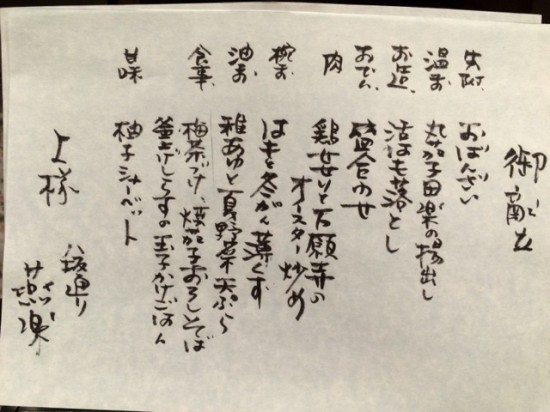 御献立
先附 おばんざい
温物 丸茄子田楽の揚出し
お造り 活はも落とし
おでん 盛合わせ
肉 鶏せせりと万願寺の
オイスター炒め
椀物 はもと冬がん薄くず
油物 稚あゆと夏野菜天ぷら
食事 梅茶づけ、焼茄子おろしそば
釜上げしらすの玉子かけごはん
甘味 柚子シャーベット
上様
八坂通り